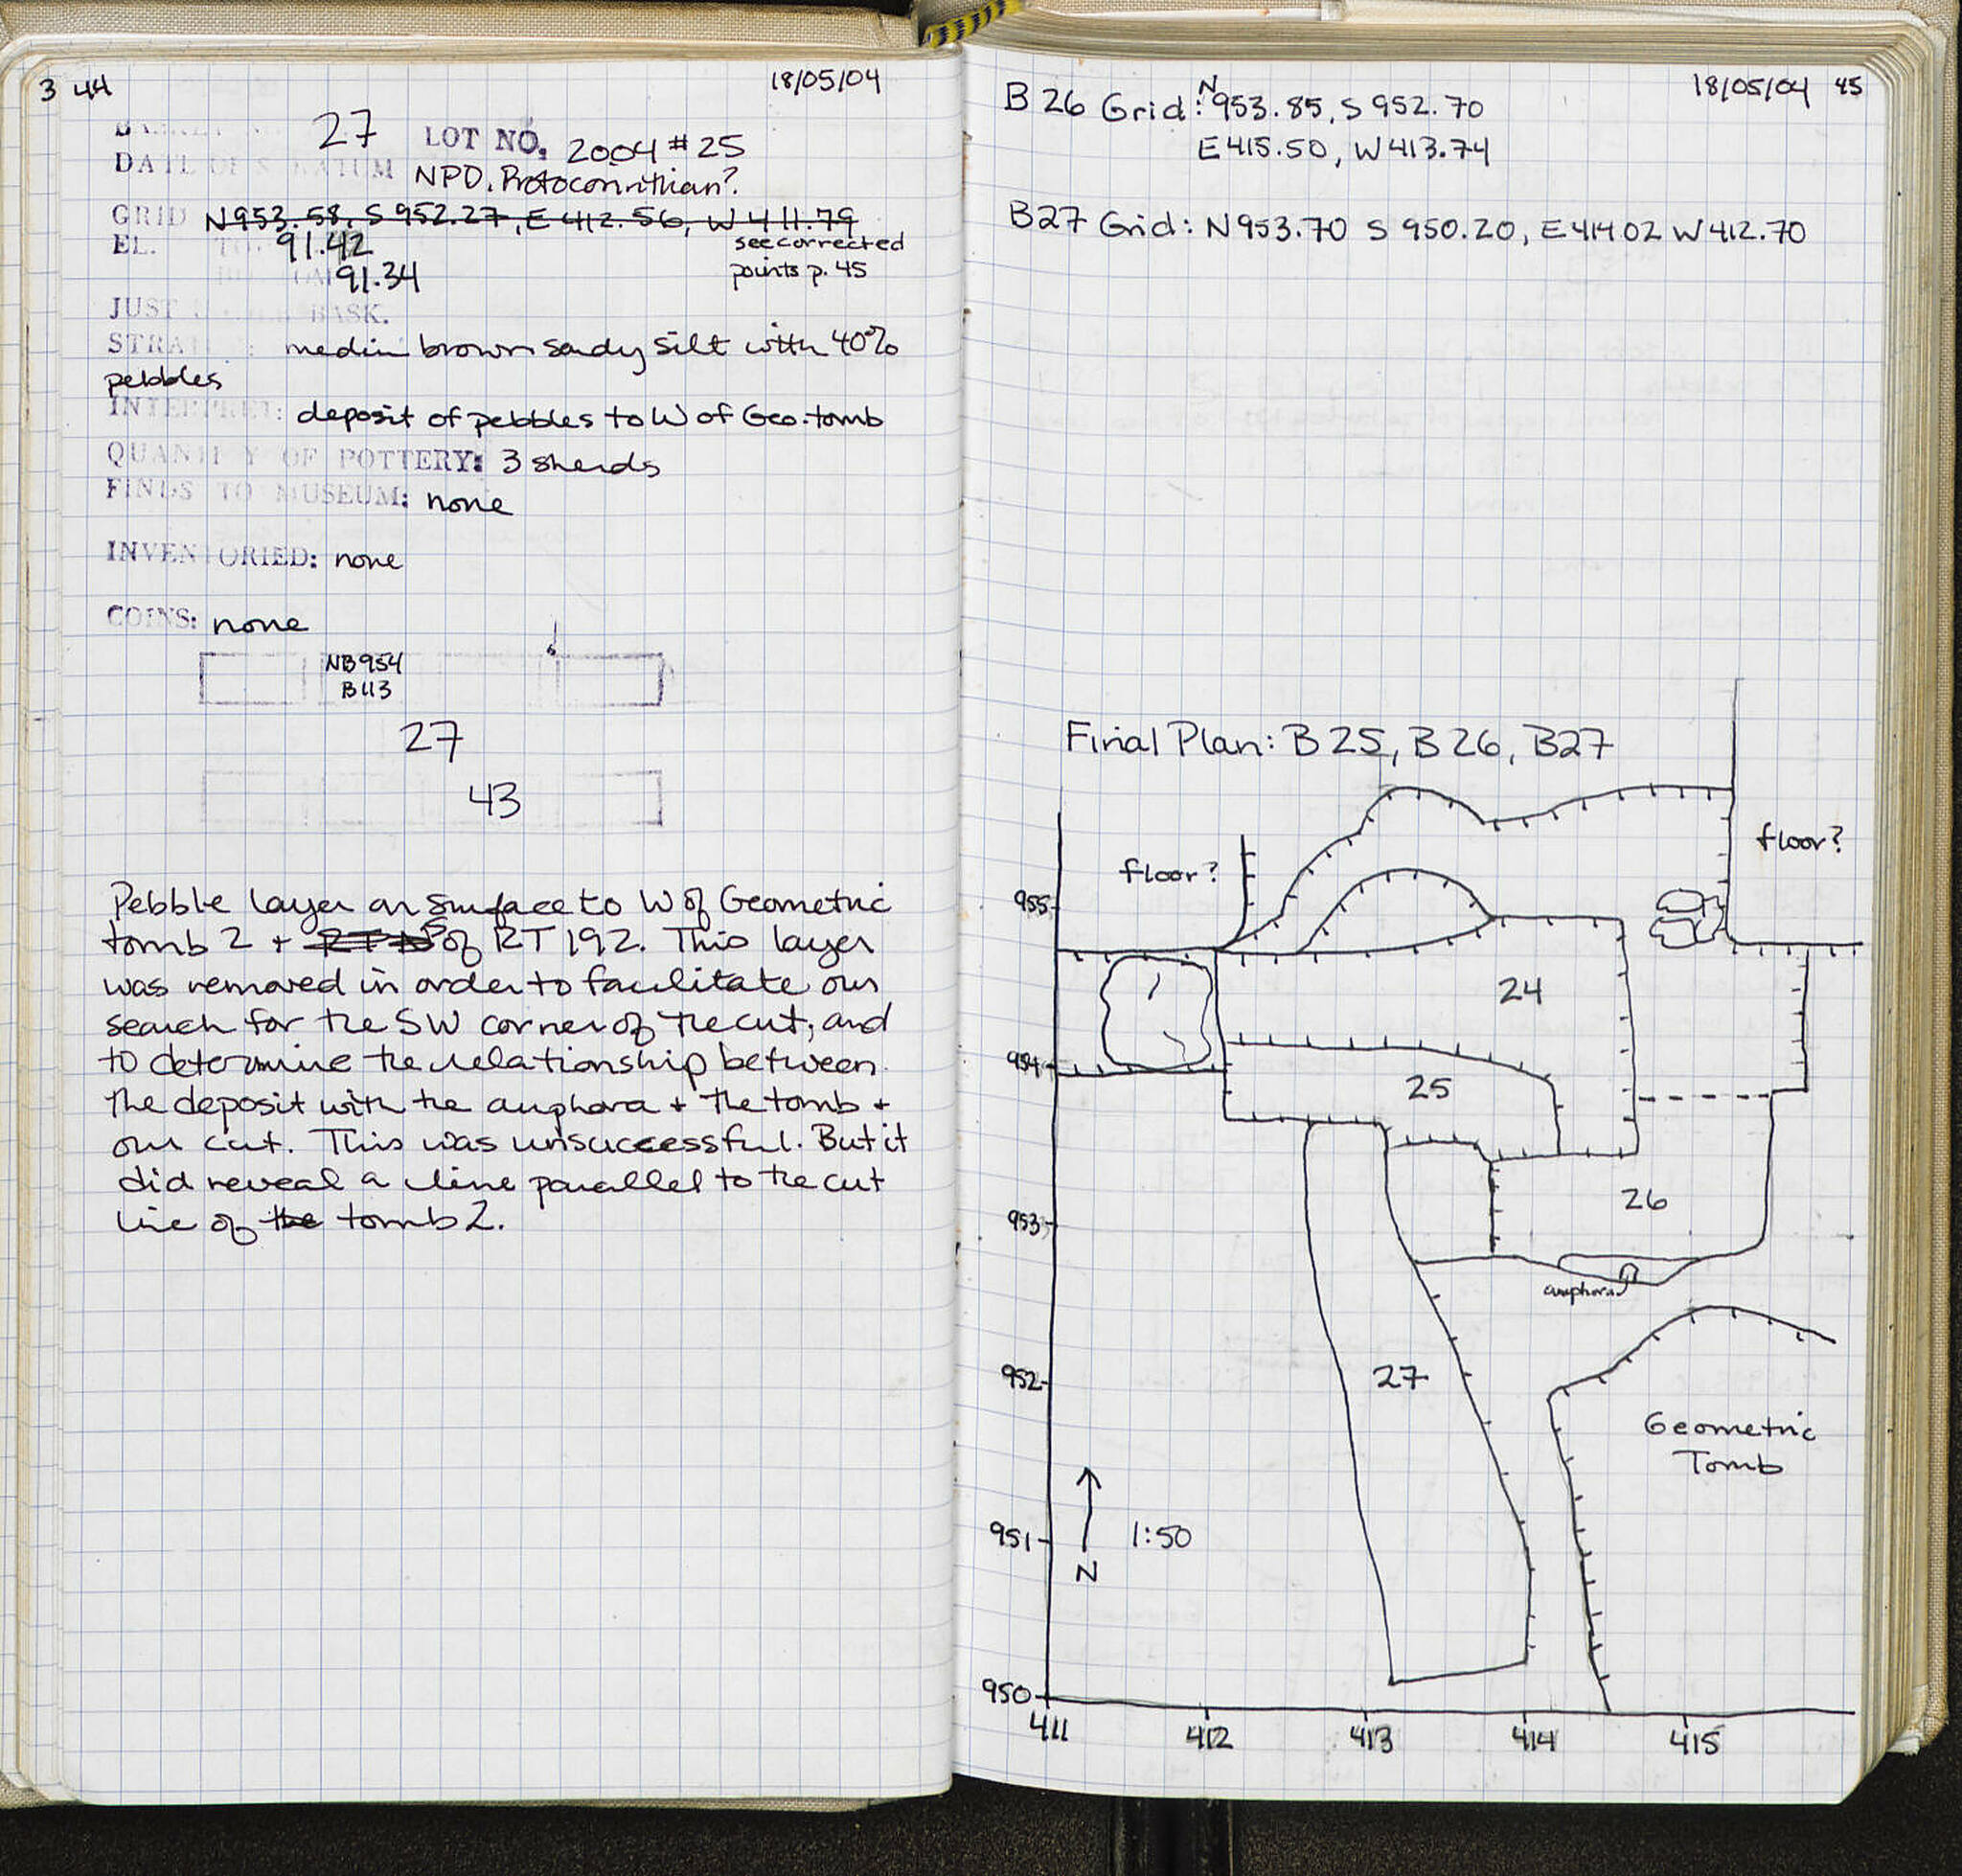 3 44
18/05/04
27 LOT NO. 2004 #25
DATE OF STRATUM NPD. Protocorinthian?
GRID N953.58, S 952.27, E 412.56, W 411.79
EL. TO 91.42 see corrected
91.34 points p. 45
JUST BASK.
STRA : medium brown sandy silt with 40%
pebbles
INTERPRET: deposit of pebbles to W of Geo. tomb
QUANTITY OF POTTERY: 3 sherds
FINDS TO MUSEUM: none
INVENTORIED: none
COINS: none
NB954
B113
27
43
Pebble layer on surface to W of Geometric
tomb 2 + S of RT 192. This layer
was removed in order to facilitate our
search for the SW corner of the cut, and
to determine the relationship between
the deposit with the amphora + the tomb +
our cut. This was unsuccessful. But it
did reveal a line parallel to the cut
line of the tomb 2.
18/05/04 45
B 26 Grid: N953.85, S 952.70
E415.50, W413.74
B27 Grid: N953.70 S 950.20, E414.02 W412.70
Final Plan: B 25, B 26, B27
floor?
floor?
955
24
954
25
26
953
amphora
952
27
Geometric
Tomb
951
1:50
N
950
411 412 413 414 415